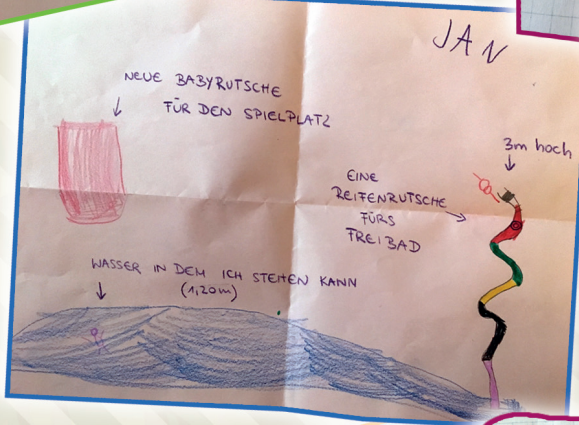 JAN
NEUE BABYRUTSCHE
FÜR DEN SPIELPLATZ
3m hoch
EINE
REIFENRUTSCHE
FÜRS
FREIBAD
WASSER IN DEM ICH STEHEN KANN
(1,20m)